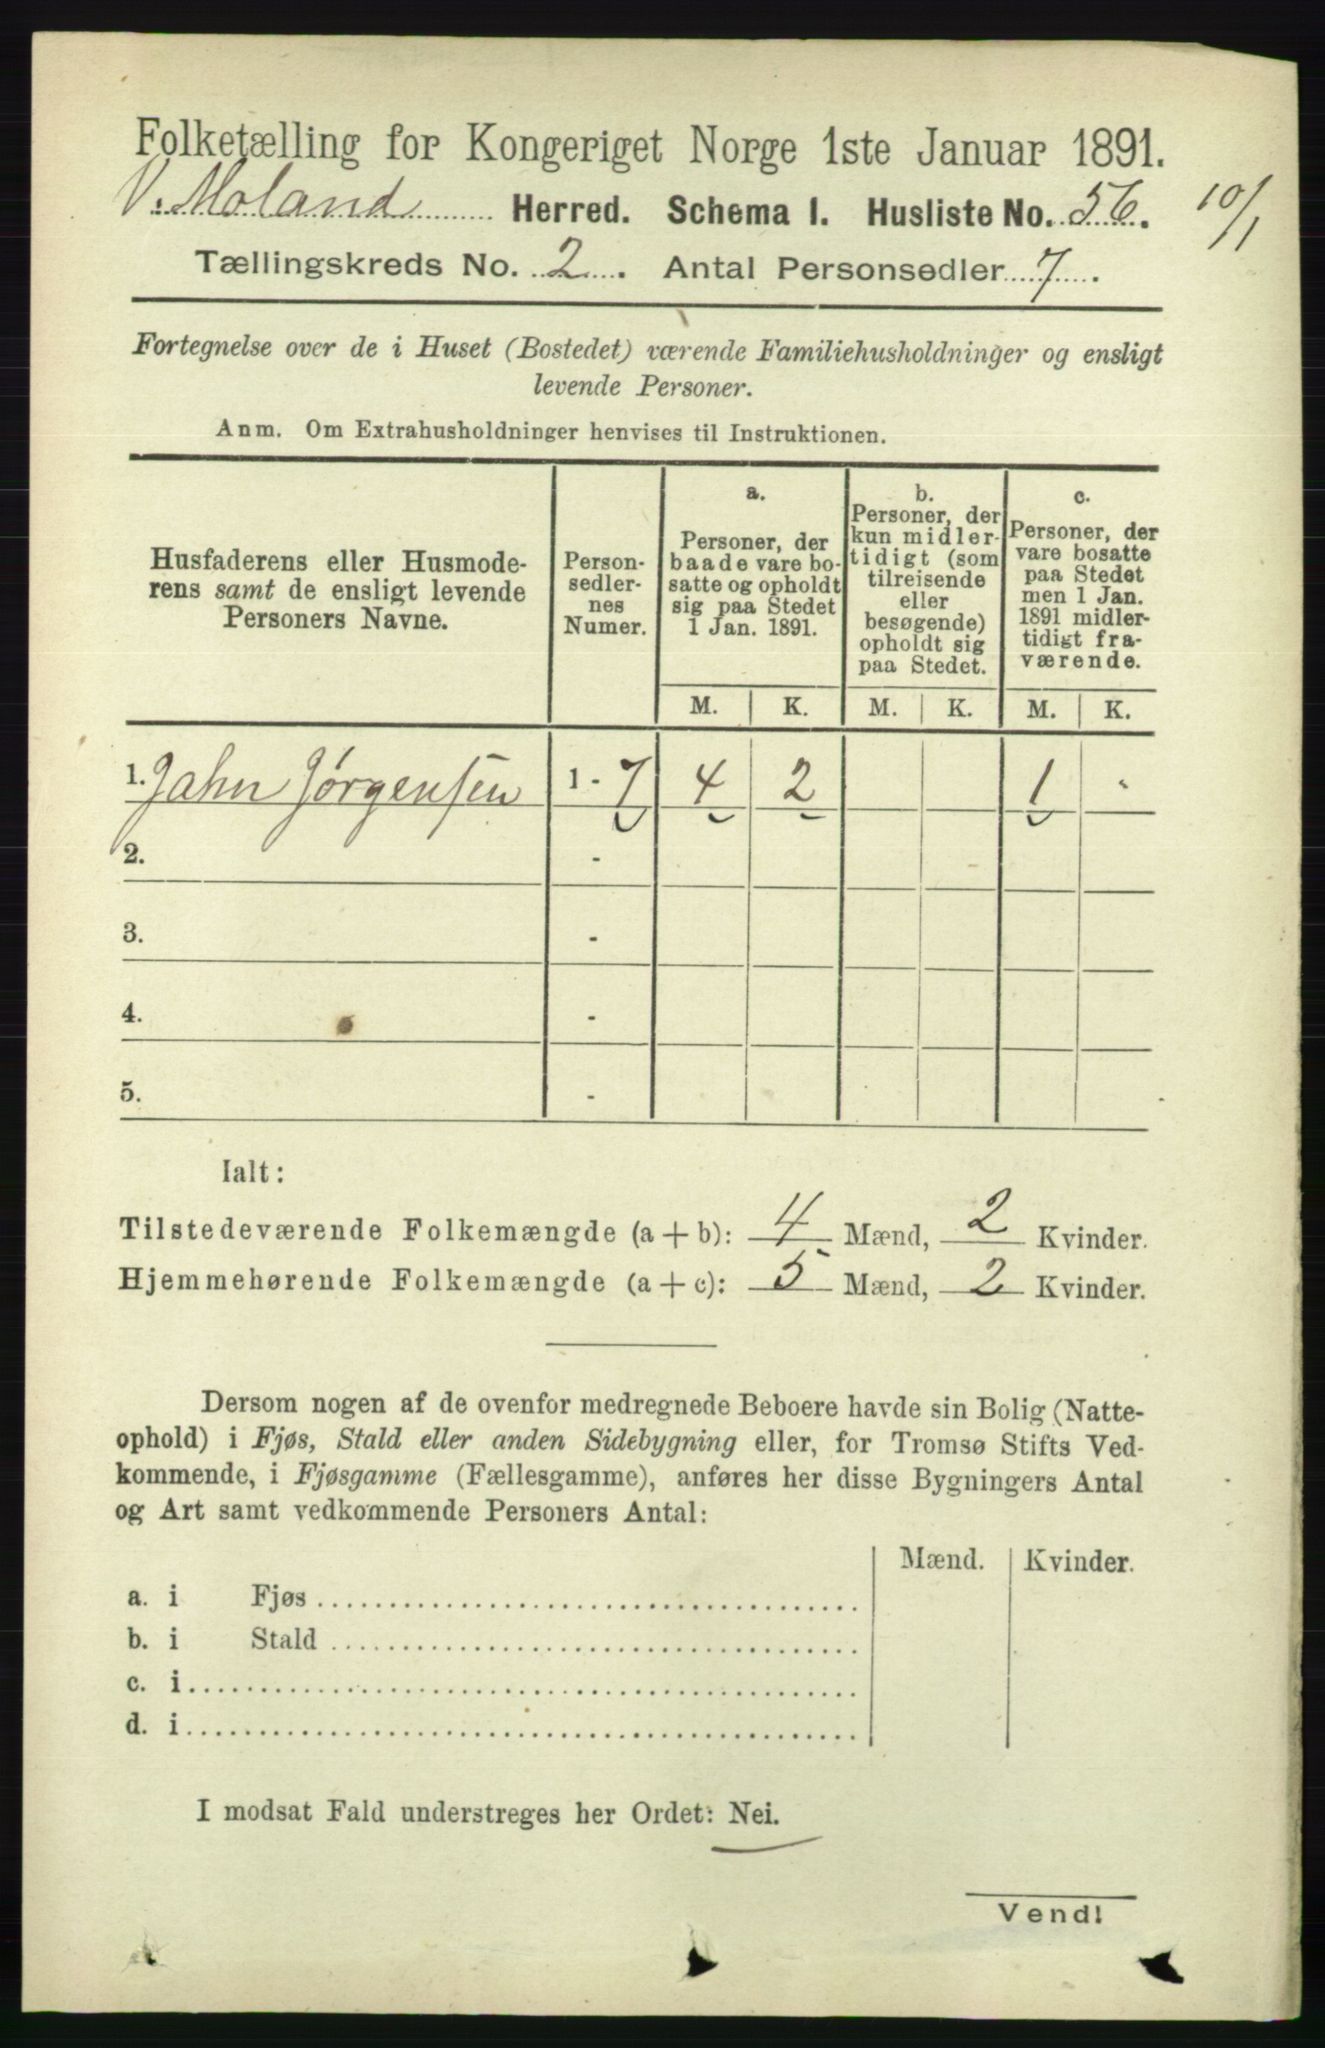 Folketælling for Kongeriget Norge 1ste Januar 1891.
V. Moland Herred. Schema I. Husliste No. 56. 10/1
Tællingskreds No. 2. Antal Personsedler 7.
Fortegnelse over de i Huset (Bostedet) værende Familiehusholdninger og ensligt
levende Personer.
Anm. Om Extrahusholdninger henvises til Instruktionen.
Husfaderens eller Husmode-
rens samt de ensligt levende
Personers Navne.
Person-
sedler-
nes
Numer.
a.
Personer, der
baade vare bo-
satte og opholdt
sig paa Stedet
1 Jan. 1891.
b.
Personer, der
kun midler-
tidigt (som
tilreisende
eller
besøgende)
opholdt sig
paa Stedet.
c.
Personer, der
vare bosatte
paa Stedet
men 1 Jan.
1891 midler-
tidigt fra-
værende.
M. K. M. K. M. K.
1. Jahn Jørgensen 1 - 7 4 2 1 "
2. -
3. -
4. -
5. -
Ialt:
Tilstedeværende Folkemængde (a + b): 4 Mænd, 2 Kvinder.
Hjemmehørende Folkemængde (a + c): 5 Mænd, 2 Kvinder.
Dersom nogen af de ovenfor medregnede Beboere havde sin Bolig (Natte-
ophold) i Fjøs, Stald eller anden Sidebygning eller, for Tromsø Stifts Ved-
kommende, i Fjøsgamme (Fællesgamme), anføres her disse Bygningers Antal
og Art samt vedkommende Personers Antal:
Mænd. Kvinder.
a. i Fjøs
b. i Stald
c. i
d. i
I modsat Fald understreges her Ordet: Nei.
Vend!